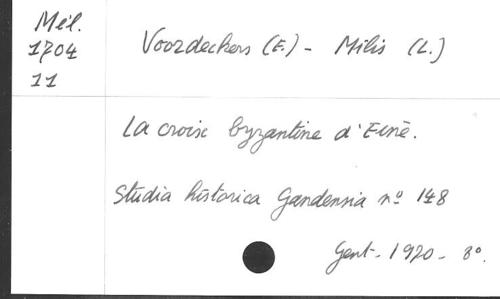 Mél.
1704
11
Voordeckers (E.) - Milis (L.)
La croix byzantine d'Eine.
Studia historica Gandensia nº 148
Gent - 1970 - 8º.